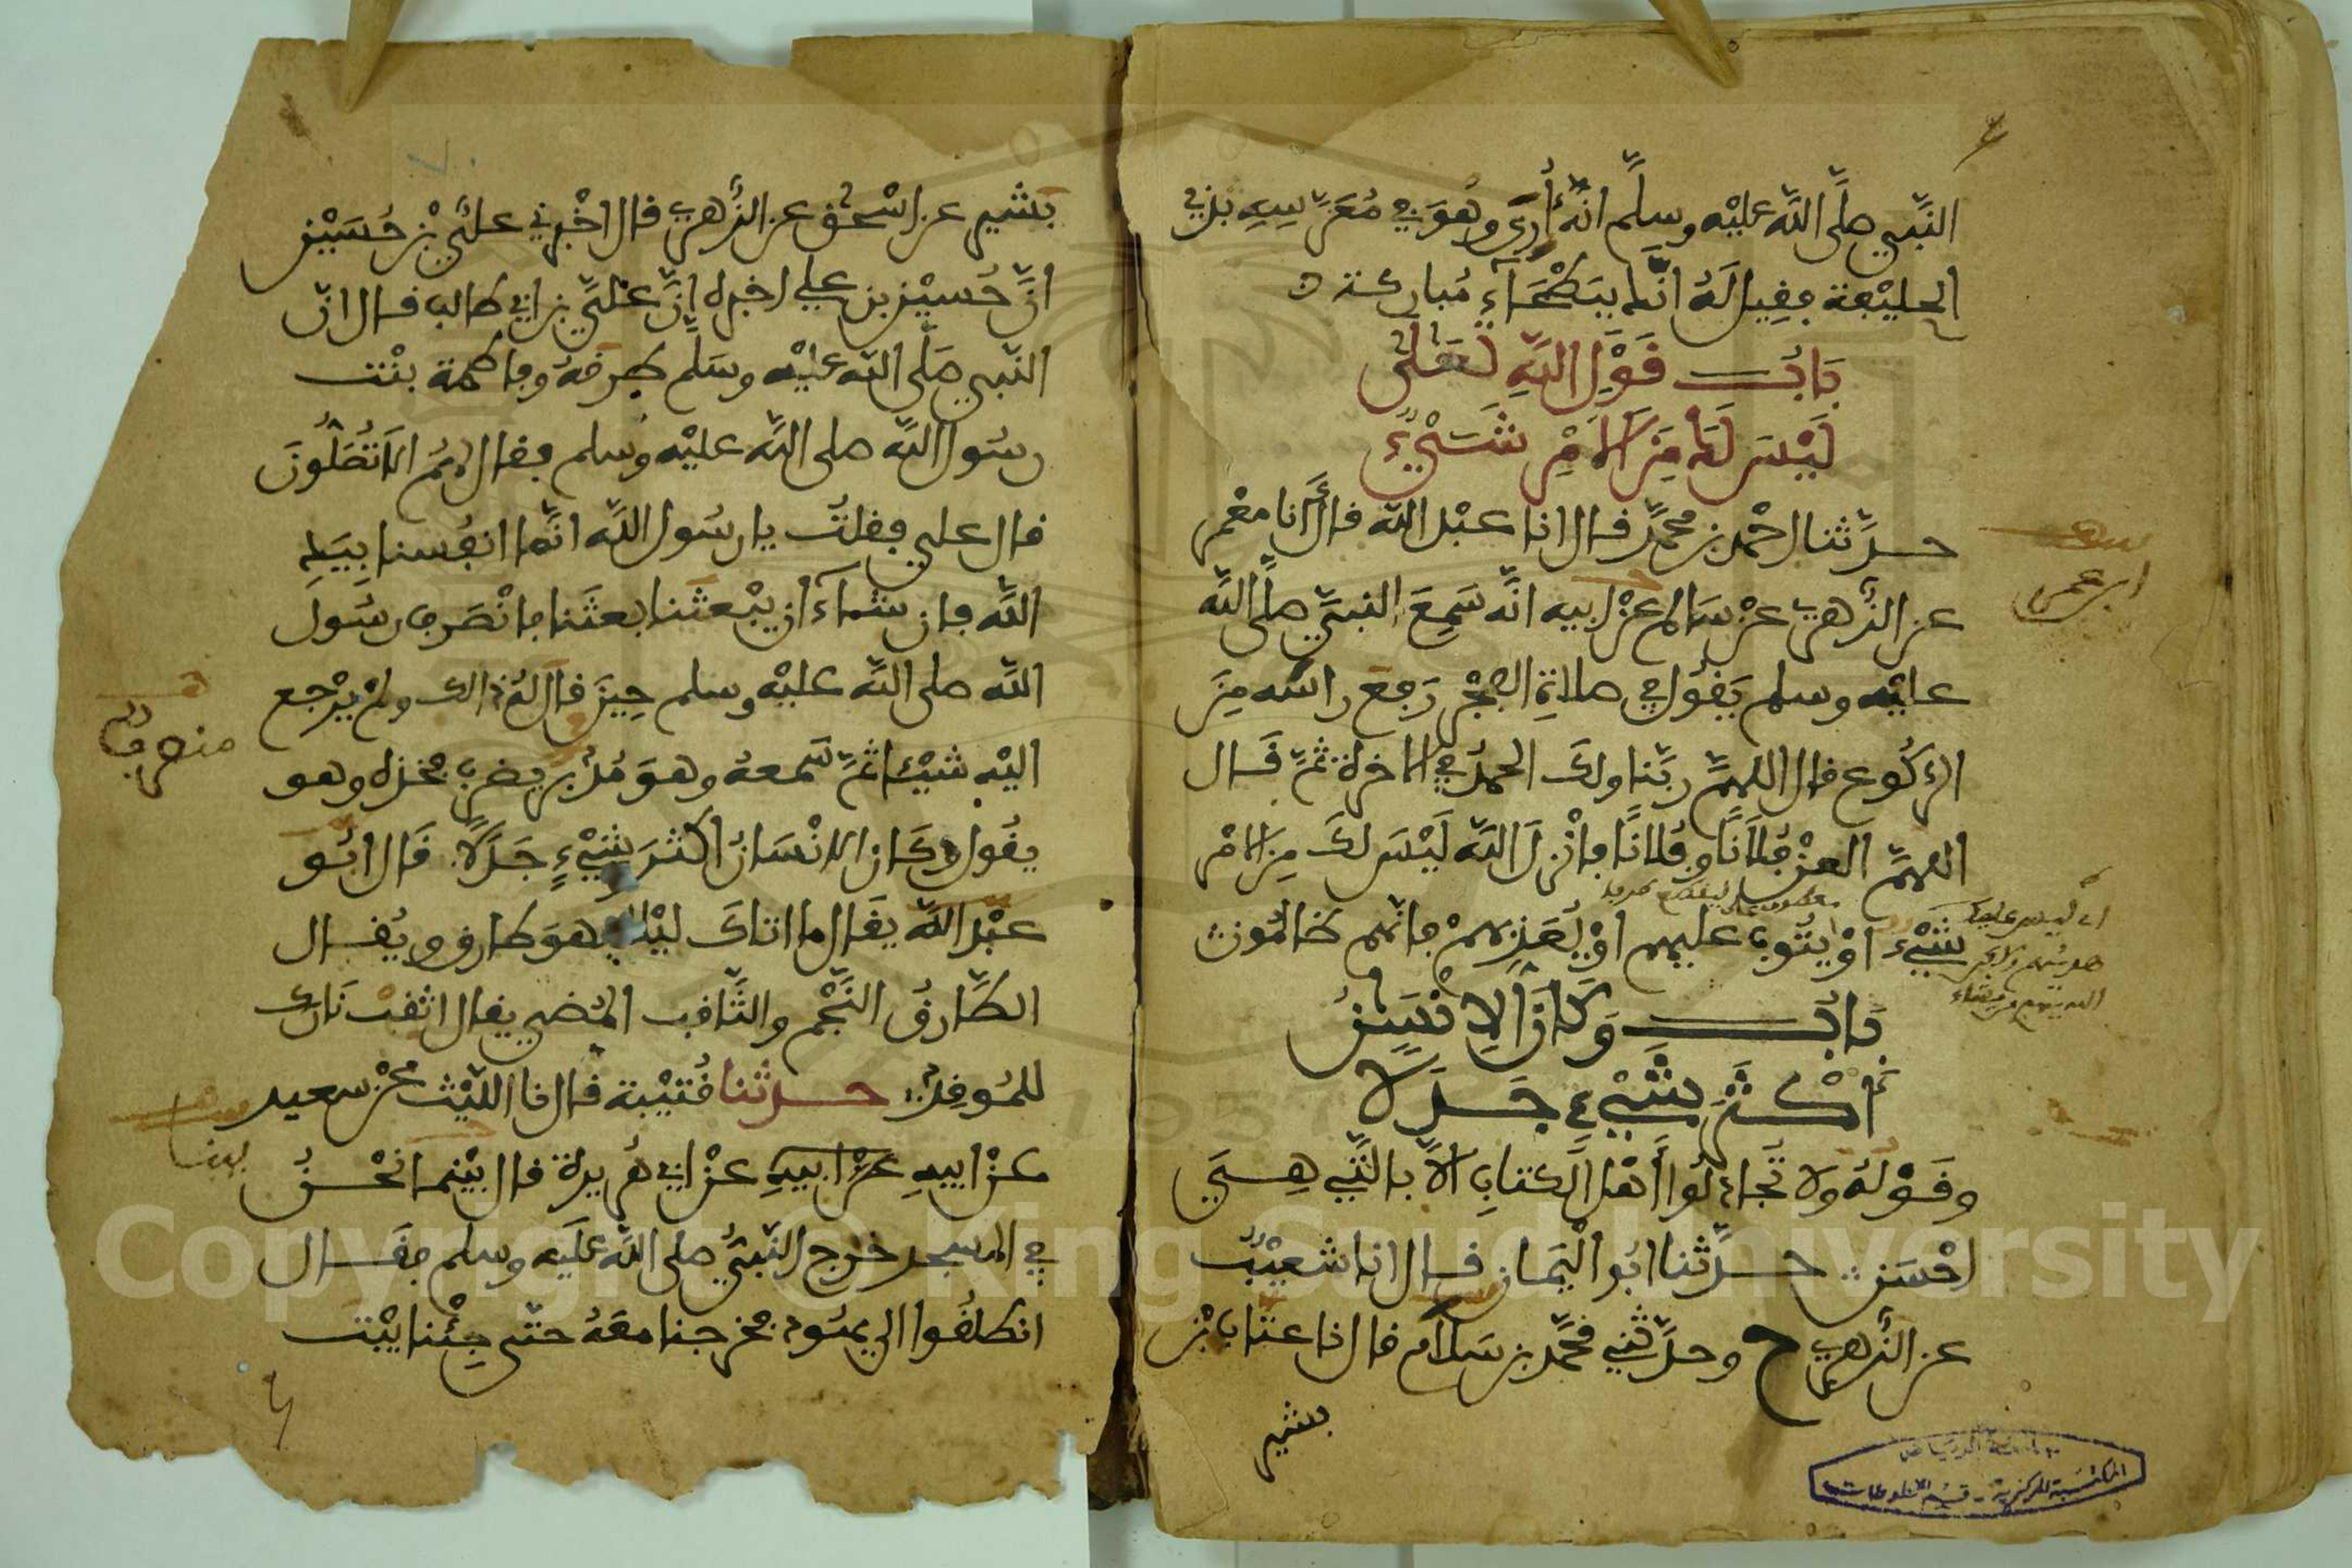 النَّبيِ صلَّى اللَّه عليْه وسلَّم انَّهُ أُرِيَ وهُوَ في مُعَرَّسِهِ بذي
الحليْفة فقِيل لَهُ انَّك ببَطْحَآءِ مُباركة
بَابُ قَوْلِ اللَّهِ تَعَلى
لَيْسَ لَكَ مِنَ الاَمْرِ شَيْءٌ
حدَّثنا احْمد بن محمَّد قال انا عبْد اللَّه قال أَنا معْمر
عن الزُّهري عنْ سَالم عنْ ابيه انَّه سَمِعَ النبيَّ صلَّى اللَّه
عليْه وسلم يَقُول في صلاةِ الفجْر رَفعَ راسَه مِنَ
الركُوع قال اللهمَّ ربَّنا ولكَ الحمدُ في الاخرة ثمَّ قَال
اللهمَّ العنْ فُلاَنًا وفُلانًا فأنْزلَ اللَّه لَيْسَ لكَ مِنَ الامْر
شيْء اوْ يتُوب عليهم اوْ يُعَذبهمْ فانهم ظالمُون
بَابُ وَكَانَ الاِنْسَنُ
أَكْثَرَ شَيْءٍ جَدَلاً
وقَوْله وَلا تُجادلُوا أَهْل الكتابِ الاَّ بالَّتي هِيَ
احْسَن حدَّثنا ابُو الْيَمان قال انا شعيْبُ
عن الزُّهري ح وحدَّثني محمَّد بن سَلاَم قال انا عتاب بْن
بشير
ابن عمر
بشير عن اسْحق عن الزُّهري قال اخْبرني عليُّ بْن حُسَيْن
انَّ حُسيْن بن علي اخبره انَّ عَليَّ بن ابي طالب قال انَّ
النَّبي صَلَّى اللَّه عليْه وسَلَّم طرقهُ وفاطمة بنْت
رسُول اللَّه صلى اللَّه عليْه وسلم فقال لهُم الاَ تُصَلُّونَ
قال علي فقلتُ يا رسُول اللَّه انَّما انفُسنا بيَدِ
اللَّه فان شآءَ أن يبْعثنا بعثَنا فانْصَرف رسُول
اللَّه صلى اللَّه عليْه وسلم حِينَ قال لهُ ذالك ولمْ يرْجع
اليْه شيْئا ثمَّ سَمعهُ وهوَ مُدْبر يضرب فخذه وهو
يقُول وكَان الانْسَانُ اكثرَ شيْءٍ جَدَلاً قَال ابُو
عبْد اللَّه يقَال ما اتاكَ ليْلا فهوَ طارق ويُقال
الطَّارقُ النَّجْم والثَّاقب المُضي يقال اثقبْ نَارك
للمُوقِد حدثنا قُتيْبة قال نا اللَّيْث عنْ سعيد
عنْ ابيهِ عنْ ابيهِ عنْ ابي هُريرة قال بيْنما نحْنُ
في المسجد خرج النَّبيُّ صلى اللَّه عَليه وسلم فقَال
انطلقُوا الى يهُود فخرجنا معَهُ حتَّى جِئْنا بيْت
منصرف
بينا
جامعة الرياض
المكتبة المركزية - قسم المخطوطات
Copyright © King Saud University
1957